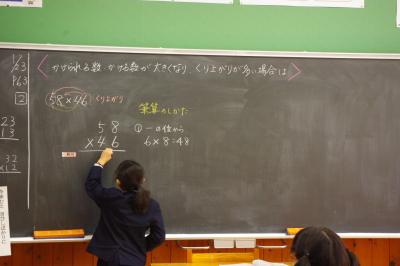 1/23
P63
2
23
13
32
×12
かけられる数、かける数が大きくなり、くり上がりが多い場合は
58×46 くり上がり
筆算のしかた
58
×46
① 一の位から
6×8=48